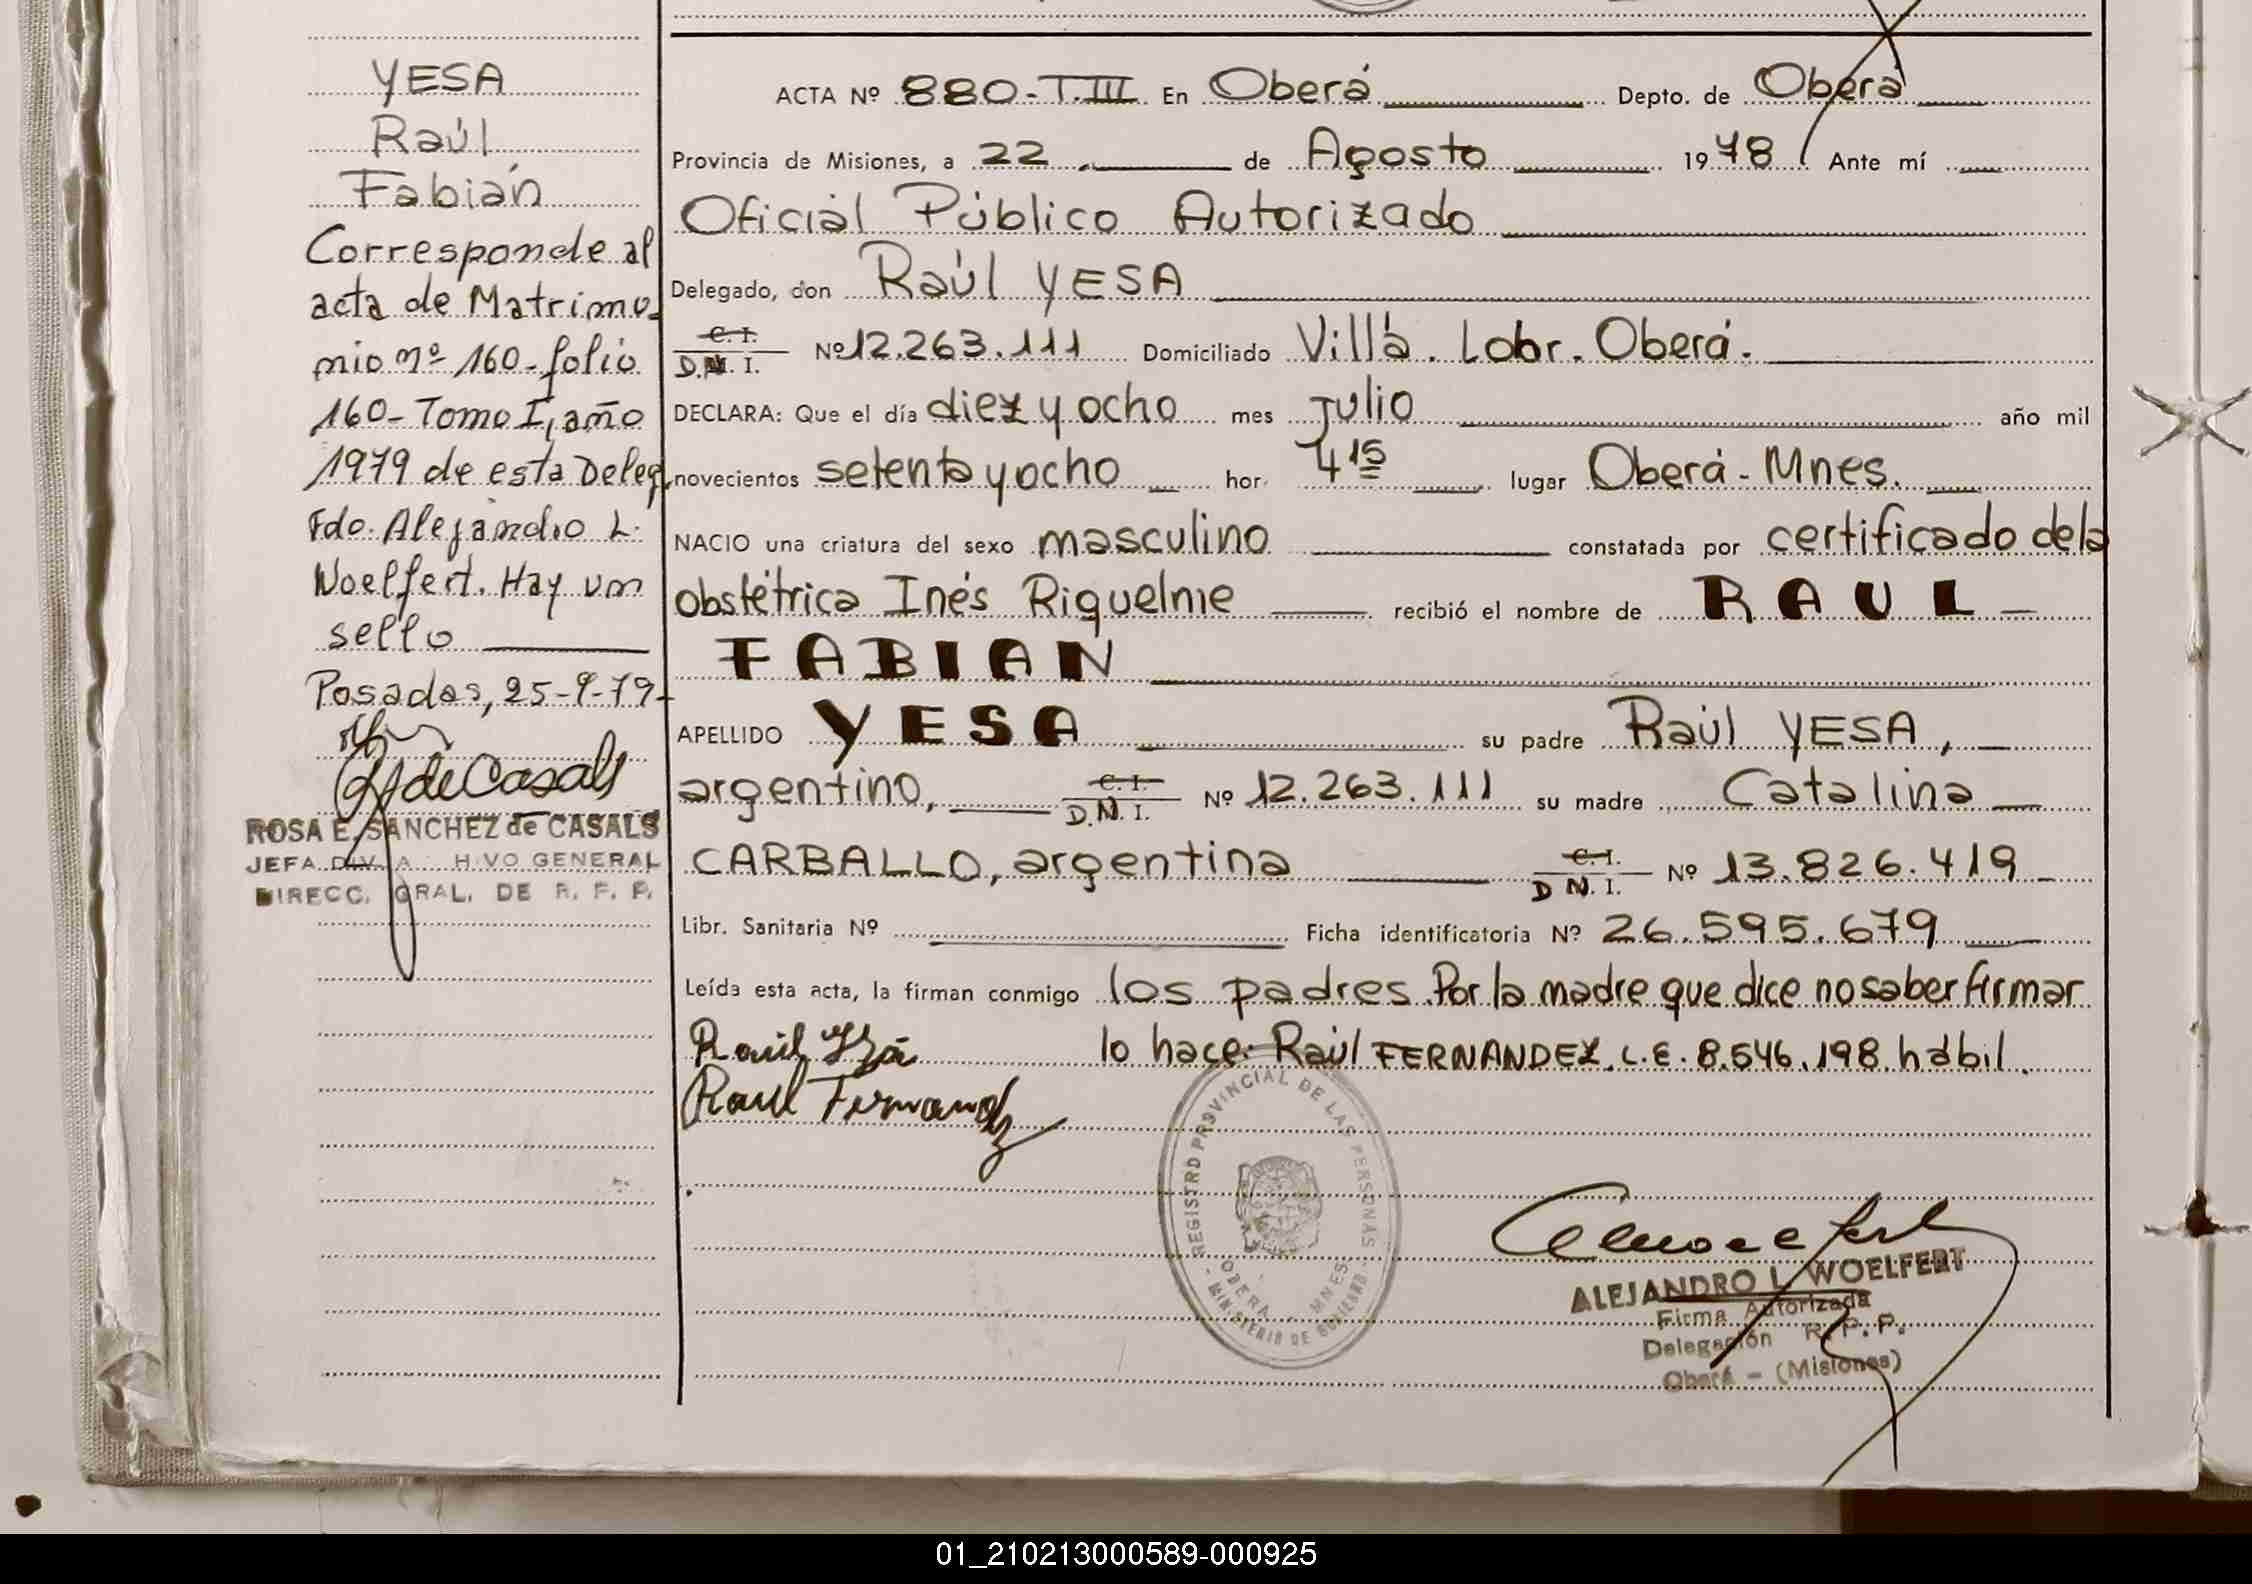 YESA
Raúl
Fabián
Corresponde al
acta de Matrimo-
nio nº 160-folio
160-Tomo I, año
1979 de esta Deleg.
Fdo. Alejandro L.
Woelfert. Hay un
sello
Posadas, 25-9-79-
R S de Casals
ROSA E. SANCHEZ de CASALS
JEFA DIV. A HIVO GENERAL
DIRECC. GRAL. DE R. P. P.
ACTA Nº 880-T.III En Oberá Depto. de Oberá
Provincia de Misiones, a 22 de Agosto 1978 Ante mí
Oficial Público Autorizado
Delegado, don Raúl YESA
C. I.
D.N. I. Nº 12.263.111 Domiciliado Villa. Lobr. Oberá.
DECLARA: Que el día diez y ocho mes julio año mil
novecientos setenta y ocho hor. 4 15 lugar Oberá-Mnes.
NACIO una criatura del sexo masculino constatada por certificado de la
obstétrica Inés Riquelme recibió el nombre de RAUL
FABIAN
APELLIDO YESA su padre Raúl YESA,
argentino, C. I. D.N. I. Nº 12.263.111 su madre Catalina
CARBALLO, argentina C. I. D N. I. Nº 13.826.419
Libr. Sanitaria Nº Ficha identificatoria Nº 26.595.679
Leída esta acta, la firman conmigo los padres. Por la madre que dice no saber firmar
lo hace: Raúl FERNANDEZ. L.E. 8.546.198. hábil.
Raúl
Raul Fernandez
REGISTRO PROVINCIAL DE LAS PERSONAS
OBERA - MNES
MINISTERIO DE GOBIERNO
ALEJANDRO L. WOELFERT
Firma Autorizada
Delegación R. P. P.
Oberá - (Misiones)
01_210213000589-000925